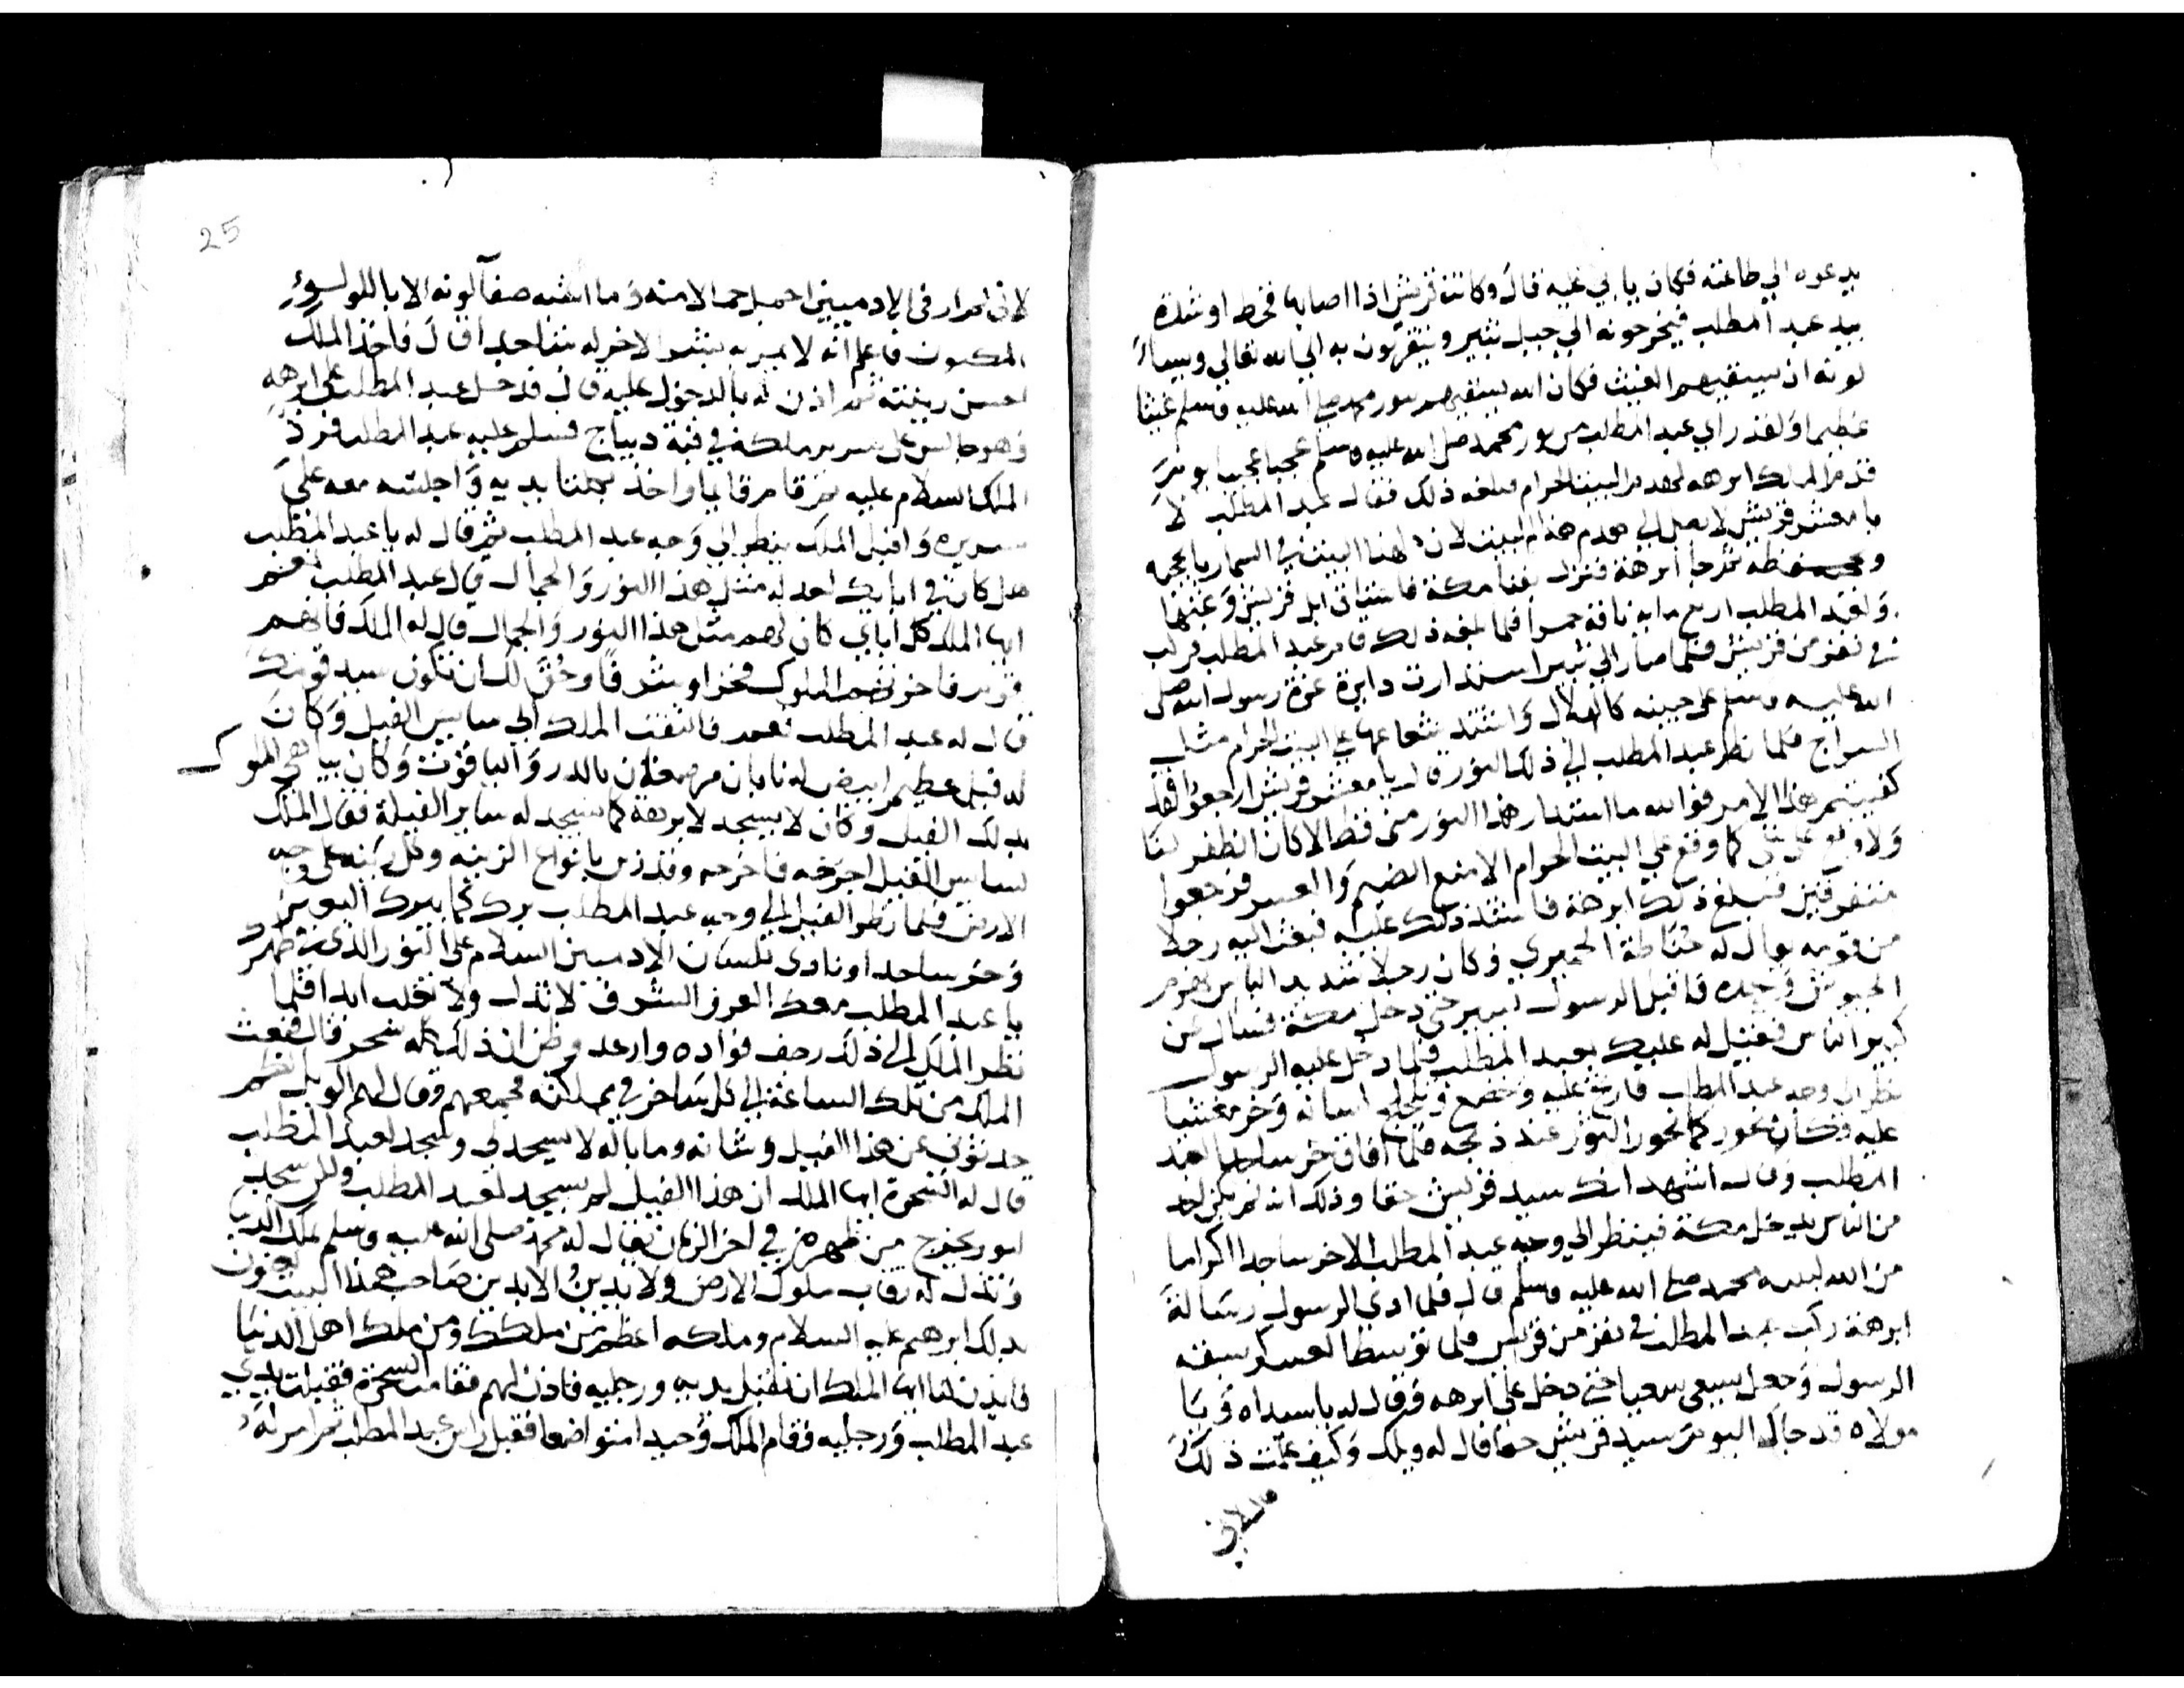 يدعوه الي طاعته فكان يابي عليه قال وكانت قريش اذا اصابها قحط او شدة
بيد عبد المطلب فيخرجونه الي جبل ثبير ويتقربون به الي الله تعالي ويسا
لونه ان يسقيهم الغيث فكان الله يسقيهم بنور محمد صلي الله عليه وسلم غيثا
عظيما ولقد راي عبد المطلب من نور محمد صلي الله عليه وسلم عجبا عجيبا يوم
قدم الملك ابرهه لهدم البيت الحرام فبلغه ذلك فقال عبد المطلب لا
يا معشر قريش لا يصل الي هدم هذا البيت لان لهذا البيت في السما ربا يحميه
ويحفظه ثم جا ابرهة فنزل بفنا مكة فاستاق ابل قريش وغنمها
ولعبد المطلب اربع مايه ناقة حمرا فلما بلغه ذلك قام عبد المطلب فركب
في نفر من قريش فلما صار الي ثبير استدارت دايرة غرة رسول الله صلي
الله عليه وسلم علي جبينه كالهلال واشتد شعاعها علي البيت الحرام مثل
السراج فلما نظر عبد المطلب الي ذلك النور قال يا معشر قريش ارجعوا فقد
كفيتم هذا الامر فوالله ما استدار هذا النور مني قط الا كان الظفر لنا
ولا وقع علي شي كما وقع علي البيت الحرام الا منع الضيم والعسر فرجعوا
متفرقين فبلغ ذلك ابرهة فاشتد ذلك عليه فبعث اليه رجلا
من قومه يقال له حناطة الحميري وكان رجلا شديد الباس هزم
الجيوش وحده فاقبل الرسول يسير حتي دخل مكة فسال عن
كبير الناس فقيل له عليك بعبد المطلب فلما دخل عليه الرسول
نظر الي وجه عبد المطلب فارتج عليه وخضع وتلجلج لسانه وخر مغشيا
عليه وكان يخور كما يخور الثور عند ذبحه فلما افاق خر ساجدا لعبد
المطلب وقال اشهد انك سيد قريش حقا وذلك انه لم يكن احد
من الناس يدخل مكة فينظر الي وجه عبد المطلب الا خر ساجدا اكراما
من الله لنبيه محمد صلي الله عليه وسلم قال فلما ادي الرسول رسالة
ابرهة ركب عبد المطلب في نفر من قريش فلما توسط العسكر سبقه
الرسول وجعل يسعي سعيا حتي دخل علي ابرهه وقال له يا سيداه ويا
مولاه قد جاك اليوم سيد قريش حقا قال له ويلك وكيف علمت ذلك
قال لاني
25
لاني لم ار في الادميين اجمل جمالا منه وما اشبه صفا لونه الا باللولو
المكنون فاعلم انه لا يمر به شي الا خر له ساجدا قال فاخذ الملك
احسن زينته ثم اذن له بالدخول عليه قال فدخل عبد المطلب علي ابرهه
وهو جالس علي سرير ملكه في قبة ديباج فسلم عليه عبد المطلب فرد
الملك السلام عليه ثم قام قايما واخذ بكلتا يديه واجلسه معه علي
سريره واقبل الملك ينظر الي وجه عبد المطلب ثم قال له يا عبد المطلب
هل كان في ابايك احد له مثل هذا النور والجمال قال عبد المطلب نعم
ايها الملك كل اباي كان لهم مثل هذا النور والجمال قال له الملك فانهم
قوم فاخرتهم الملوك فخرا وشرفا وحق لك ان تكون سيد قومك
قال له عبد المطلب نعم فالتفت الملك الي سايس الفيل وكان
له فيل عظيم ابيض له نابان مرصعان بالدر والياقوت وكان يباهي الملوك
بذلك الفيل وكان لا يسجد لابرهة كما يسجد له ساير الفيلة فقال الملك
لسايس الفيل اخرجه فاخرجه وقد زين بانواع الزينه وكل زينه علي وجه
الارض فلما نظر الفيل الي وجه عبد المطلب برك كما يبرك البعير
وخر ساجدا ونادي بلسان الادميين السلام علي النور الذي في ظهرك
يا عبد المطلب معك العز والشرف لا تذل ولا تغلب ابدا فلما
نظر الملك الي ذلك رجف فواده وارعد وظن ان ذلك كله سحر قال فبعث
الملك من تلك الساعة الي كل ساحر في مملكته فجمعهم وقال لهم الويل لكم
حدثوني عن هذا الفيل وشانه وما باله لا يسجد لي ويسجد لعبد المطلب
قال له السحرة ايها الملك ان هذا الفيل لم يسجد لعبد المطلب ولكن سجد
لنور يخرج من ظهره في اخر الزمان يقال له محمد صلي الله عليه وسلم يملك الدنيا
وتذل له رقاب ملوك الارض ولا يدين الا بدين صاحب هذا البيت
بذلك ابرهيم عليه السلام وملكه اعظم من ملكك ومن ملك اهل الدنيا
فايذن لنا ايها الملك ان نقبل يديه ورجليه فاذن لهم فقامت السحرة فقبلت يدي
عبد المطلب ورجليه وقام الملك وحيدا متواضعا فقبل راس عبد المطلب ثم امر له